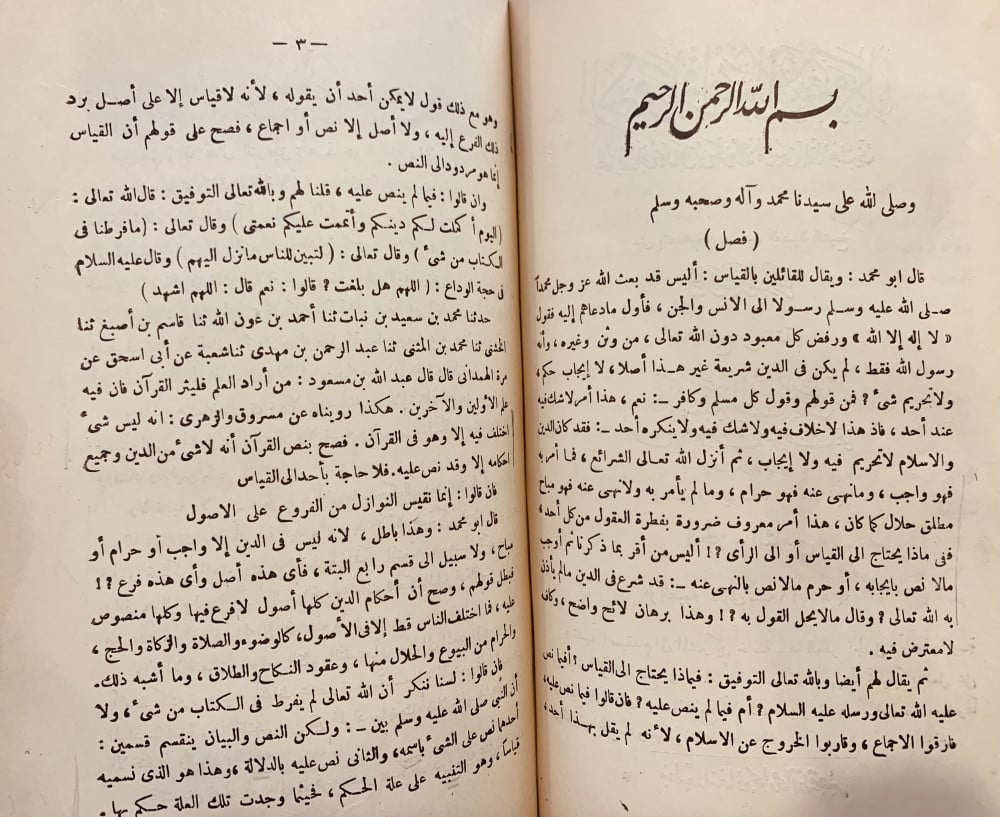 بسم الله الرحمن الرحيم
وصلى الله على سيدنا محمد وآله وصحبه وسلم
( فصل )
قال ابو محمد : ويقال للقائلين بالقياس : أليس قد بعث الله عز وجل محمدآ
صلى الله عليه وسلم رسولا الى الانس والجن ، فأول مادعاهم إليه فقول
« لا إله إلا الله » ورفض كل معبود دون الله تعالى ، من وثن وغيره ، وأنه
رسول الله فقط ، لم يكن فى الدين شريعة غير هذا أصلا ، لا إيجاب حكم ،
ولا تحريم شئ ? فمن قولهم وقول كل مسلم وكافر ــ : نعم ، هذا أمر لاشك فيه
عند أحد ، فاذ هذا لاخلاف فيه ولاشك فيه ولاينكره أحد ــ : فقد كان الدين
والاسلام لاتحريم فيه ولا إيجاب ، ثم أنزل الله تعالى الشرائع ، فما أمر به
فهو واجب ، ومانهى عنه فهو حرام ، وما لم يأمر به ولانهى عنه فهو مباح
مطلق حلال كما كان ، هذا أمر معروف ضرورة بفطرة العقول من كل أحد ،
ففى ماذا يحتاج الى القياس أو الى الرأى ?! أليس من أقر بما ذكرنا ثم أوجب
مالا نص بايجابه ، أو حرم مالا نص بالنهى عنه ــ : قد شرع فى الدين مالم يأذن
به الله تعالى ? وقال مالايحل القول به ?! وهذا برهان لائح واضح ، وكاف
لامعترض فيه .
ثم يقال لهم أيضا وبالله تعالى التوفيق : فياذا يحتاج الى القياس ? أفيما نص
عليه الله تعالى ورسله عليه السلام ? أم فيما لم ينص عليه ? فان قالوا فيما نص عليه ،
فارقوا الاجماع ، وقاربوا الخروج عن الاسلام ، لأنه لم يقل بهذا أحد ،
— ٣ —
وهو مع ذلك قول لايمكن أحد أن يقوله ، لأنه لاقياس إلا على أصل يرد
ذلك الفرع إليه ، ولا أصل إلا نص أو اجماع ، فصح على قولهم أن القياس
إنما هو مردود الى النص .
وان قالوا : فيما لم ينص عليه ، قلنا لهم وبالله تعالى التوفيق : قال الله تعالى :
( اليوم أكملت لكم دينكم وأتممت عليكم نعمتى ) وقال تعالى : ( مافرطنا فى
الكتاب من شئ ) وقال تعالى : ( لتبين للناس مانزل اليهم ) وقال عليه السلام
فى حجة الوداع : ( اللهم هل بلغت ? قالوا : نعم قال : اللهم اشهد )
حدثنا محمد بن سعيد بن نبات ثنا أحمد بن عون الله ثنا قاسم بن أصبغ ثنا
الخشنى ثنا محمد بن المثنى ثنا عبد الرحمن بن مهدى ثنا شعبة عن أبى اسحق عن
مرة الهمدانى قال قال عبد الله بن مسعود : من أراد العلم فليثر القرآن فان فيه
علم الأولين والآخرين . هكذا رويناه عن مسروق والزهرى : انه ليس شئ
اختلف فيه إلا وهو فى القرآن . فصح بنص القرآن أنه لاشئ من الدين وجميع
احكامه إلا وقد نص عليه . فلا حاجة بأحد الى القياس
فان قالوا : إنما نقيس النوازل من الفروع على الاصول
قال ابو محمد : وهذا باطل ، لانه ليس فى الدين إلا واجب أو حرام أو
مباح ، ولا سبيل الى قسم رابع البتة ، فأى هذه أصل وأى هذه فرع ?!
فبطل قولهم ، وصح أن أحكام الدين كلها أصول لافرع فيها وكلها منصوص
عليه ، فما اختلف الناس قط إلا فى الأصول ، كالوضوء والصلاة والزكاة والحج ،
والحرام من البيوع والحلال منها ، وعقود النكاح والطلاق ، وما أشبه ذلك .
فان قالوا : لسنا ننكر أن الله تعالى لم يفرط فى الكتاب من شئ ، ولا
أن النبى صلى الله عليه وسلم بين ــ : ولكن النص والبيان ينقسم قسمين :
أحدهما نص على الشئ باسمه ، والثانى نص عليه بالدلالة ، وهذا هو الذى نسميه
قياسا ، وهو التنبيه على علة الحكم ، فحيثما وجدت تلك العلة حكم بها .